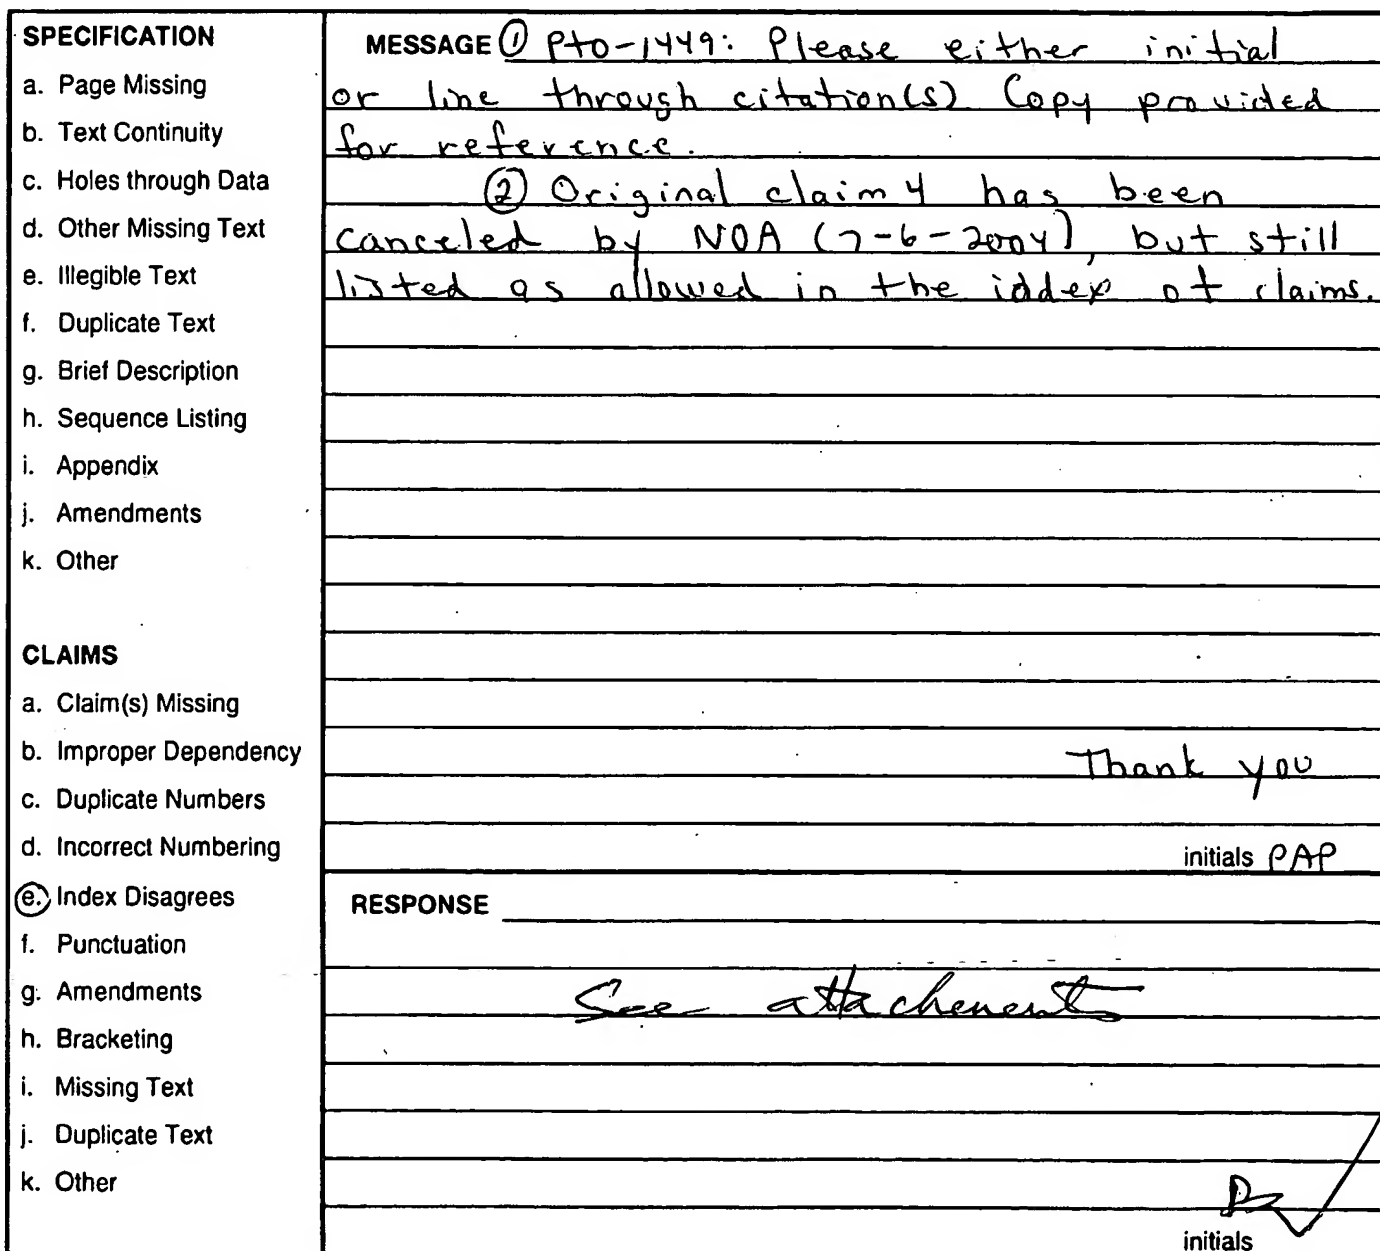 SPECIFICATION
a. Page Missing
b. Text Continuity
c. Holes through Data
d. Other Missing Text
e. Illegible Text
f. Duplicate Text
g. Brief Description
h. Sequence Listing
i. Appendix
j. Amendments
k. Other
CLAIMS
a. Claim(s) Missing
b. Improper Dependency
c. Duplicate Numbers
d. Incorrect Numbering
e. Index Disagrees
f. Punctuation
g. Amendments
h. Bracketing
i. Missing Text
j. Duplicate Text
k. Other
MESSAGE ① PtO-1449: Please either initial
or line through citation(s) Copy provided
for reference.
② Original claim 4 has been
canceled by NOA (7-6-2004), but still
listed as allowed in the iddex of claims.
Thank you
initials PAP
RESPONSE
See attachement
initials